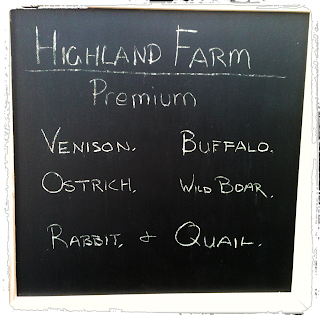 HIGHLAND FARM
Premium
VENISON. BUFFALO.
OSTRICH. WILD BOAR.
RABBIT, & QUAIL.